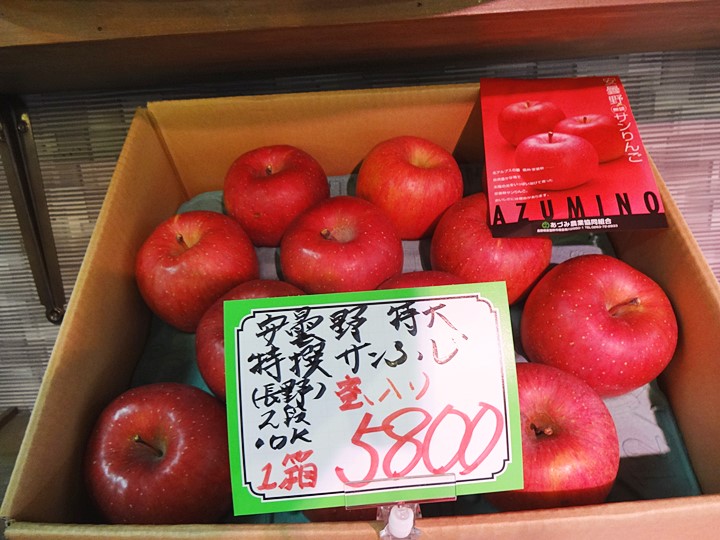 安曇野
サンりんご
AZUMINO
あづみ農業協同組合
安曇野 特大
特撰 サンふじ
(長野)
蜜入り
2段
10K
1箱 5800